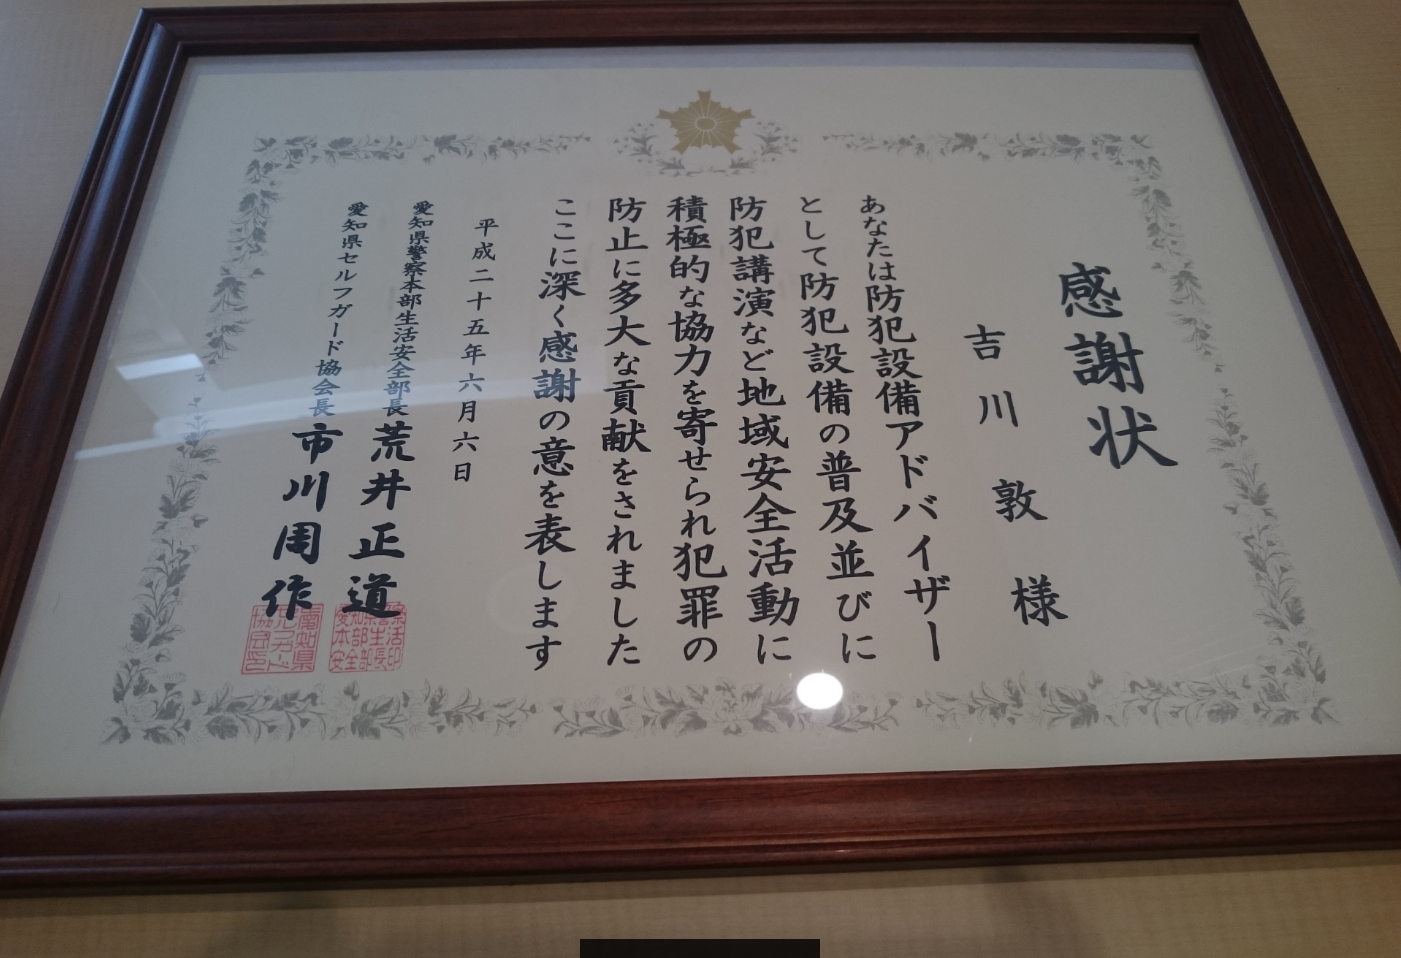 感謝状
吉川敦様
あなたは防犯設備アドバイザー
として防犯設備の普及並びに
防犯講演など地域安全活動に
積極的な協力を寄せられ犯罪の
防止に多大な貢献をされました
ここに深く感謝の意を表します
平成二十五年六月六日
愛知県警察本部生活安全部長 荒井正道
愛知県セルフガード協会長 市川周作